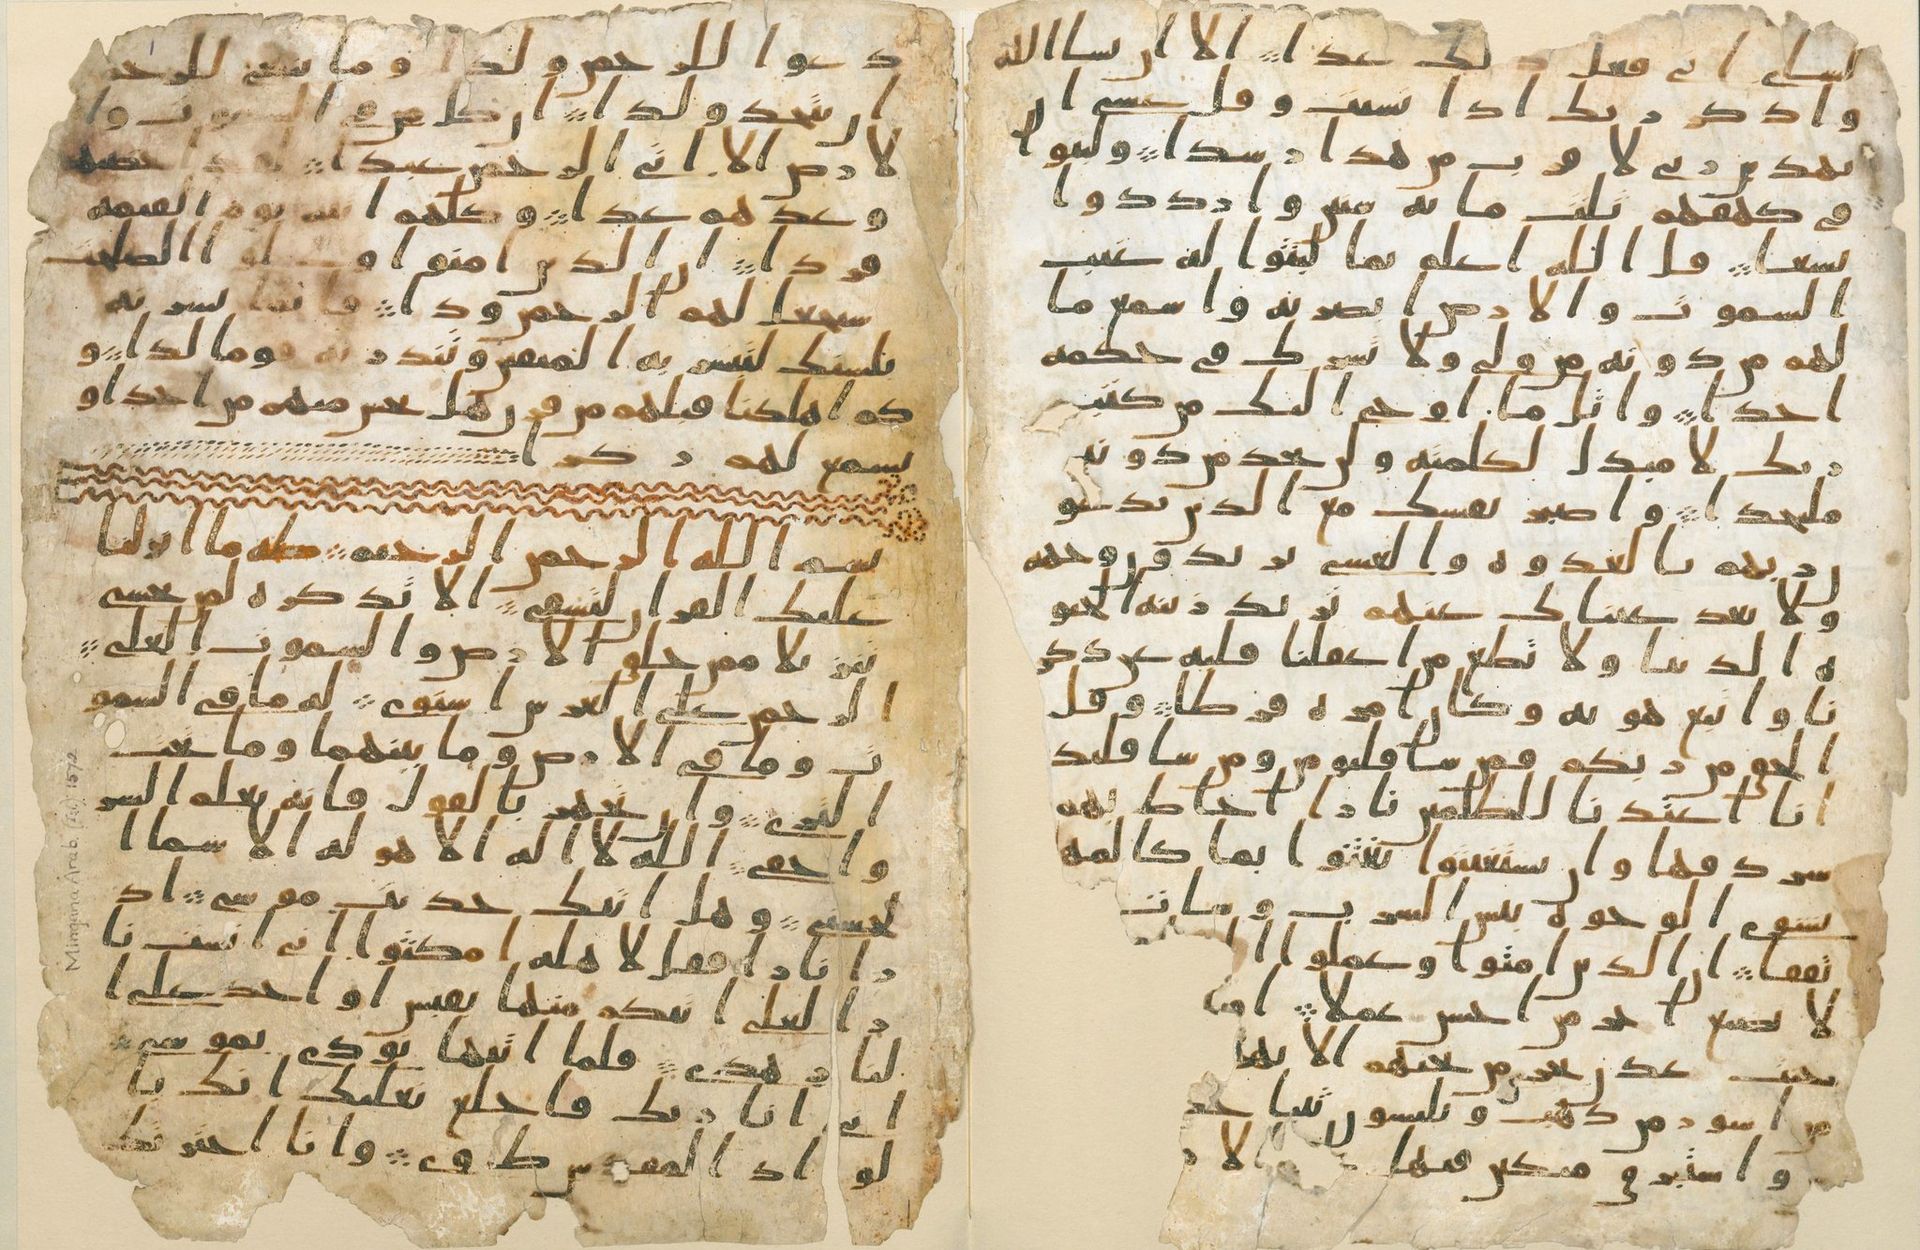 لشاي اني فعل ذلك غدا الا ان يشا الله
واذكر ربك اذا نسيت وقل عسى ان
يهدين ربي لاقرب من هذا رشدا ولبثوا
في كهفهم ثلث مايه سنين وازددوا
تسعا قل الله اعلم بما لبثوا له غيب
السموت والارض ابصر به واسمع ما
لهم من دونه من ولي ولا يشرك في حكمه
احدا واتل ما اوحي اليك من كتب
ربك لا مبدل لكلمته ولن تجد من دونه
ملتحدا واصبر نفسك مع الذين يدعو
ن ربهم بالغدوه والعشي يريدون وجهه
ولا تعد عيناك عنهم تريد زينه الحيو
ه الدنيا ولا تطع من اغفلنا قلبه عن ذكر
نا واتبع هويه وكان امره فرطا وقل
الحق من ربكم فمن شا فليومن ومن شا فليكفر
انا اعتدنا للظلمين نارا احاط بهم
سردقها وان يستغيثوا يغثوا بما كالمهل
يشوي الوجوه بيس الشرب وسات
تفقا ان الذين امنوا وعملوا ا
لا نضيع اجر من احسن عملا
جنت عدن تجري من تحتهم الانها
من اسور من ذهب ويلبسون ثيابا
واستبرق متكين فيها
دعوا للرحمن ولدا وما ينبغي للرحمن
ان يتخذ ولدا ان كل من في السموت وا
لارض الا اتي الرحمن عبدا لقد احصيهم
وعدهم عدا وكلهم اتيه يوم القيمه
فردا ان الذين امنوا وعملوا الصلحت
سيجعل لهم الرحمن ودا فانما يسرنه
بلسنك لتبشر به المتقين وتنذر به قوما لدا و
كم اهلكنا قبلهم من قرن هل تحس منهم من احد او
تسمع لهم ركزا
بسم الله الرحمن الرحيم طه ما انزلنا
عليك القران لتشقى الا تذكره لمن يخشى
تنزيلا ممن خلق الارض والسموت العلى
الرحمن على العرش استوى له ما في السمو
ت وما في الارض وما بينهما وما تحت
الثرى وان تجهر بالقول فانه يعلم السر
واخفى الله لا اله الا هو له الاسما ا
لحسنى وهل اتيك حديث موسى اذ
را نارا فقل لاهله امكثوا اني انست نا
را لعلي اتيكم منها بقبس او اجد على ا
لنار هدى فلما اتيها نودي يموسى
اني انا ربك فاخلع نعليك انك با
لواد المقدس طوى وانا اخترتك
Mingana Arab. (Is.) 1572